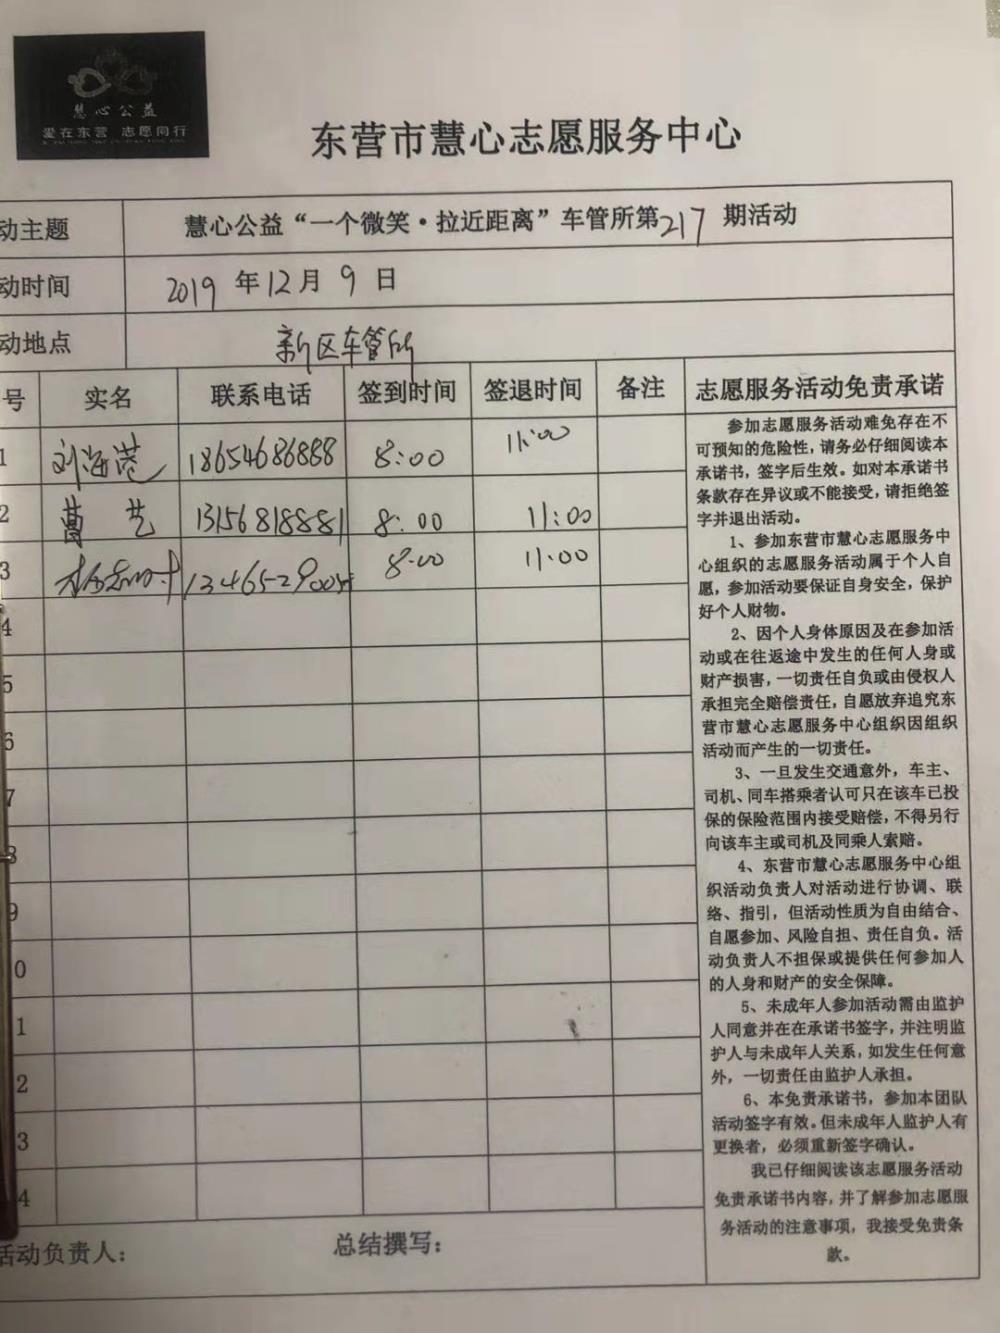 慧心公益
爱在东营 志愿同行
东营市慧心志愿服务中心
动主题 慧心公益“一个微笑·拉近距离”车管所第217期活动
动时间 2019年12月9日
动地点 新区车管所
号 实名 联系电话 签到时间 签退时间 备注 志愿服务活动免责承诺
1 刘海 18654686888 8:00 11:00
2 艺 13156818881 8:00 11:00
3 8:00 11:00
4
5
6
7
8
9
0
1
2
3
4
参加志愿服务活动难免存在不
可预知的危险性，请务必仔细阅读本
承诺书，签字后生效。如对本承诺书
条款存在异议或不能接受，请拒绝签
字并退出活动。
1、参加东营市慧心志愿服务中
心组织的志愿服务活动属于个人自
愿，参加活动要保证自身安全，保护
好个人财物。
2、因个人身体原因及在参加活
动或在往返途中发生的任何人身或
财产损害，一切责任自负或由侵权人
承担完全赔偿责任，自愿放弃追究东
营市慧心志愿服务中心组织因组织
活动而产生的一切责任。
3、一旦发生交通意外，车主、
司机、同车搭乘者认可只在该车已投
保的保险范围内接受赔偿，不得另行
向该车主或司机及同乘人索赔。
4、东营市慧心志愿服务中心组
织活动负责人对活动进行协调、联
络、指引，但活动性质为自由结合、
自愿参加、风险自担、责任自负。活
动负责人不担保或提供任何参加人
的人身和财产的安全保障。
5、未成年人参加活动需由监护
人同意并在在承诺书签字，并注明监
护人与未成年人关系，如发生任何意
外，一切责任由监护人承担。
6、本免责承诺书，参加本团队
活动签字有效。但未成年人监护人有
更换者，必须重新签字确认。
我已仔细阅读该志愿服务活动
免责承诺书内容，并了解参加志愿服
务活动的注意事项，我接受免责条
款。
活动负责人： 总结撰写：